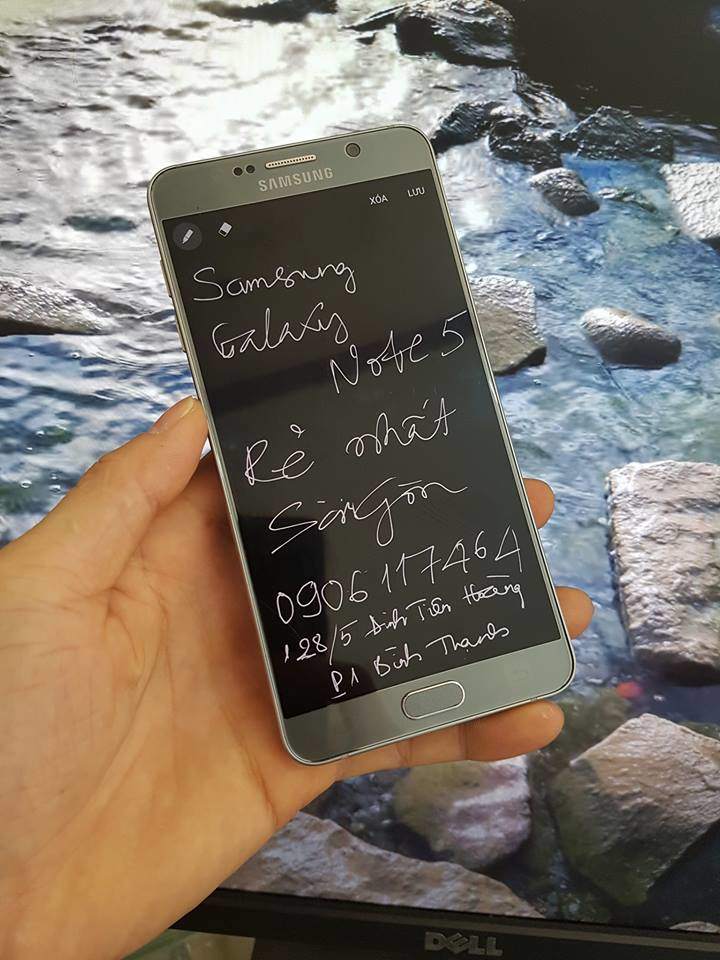 SAMSUNG
XÓA LƯU
Samsung
Galaxy
Note 5
Rẻ nhất
Sài Gòn
0906117464
128/5 Đinh Tiên Hoàng
P1 Bình Thạnh
DELL